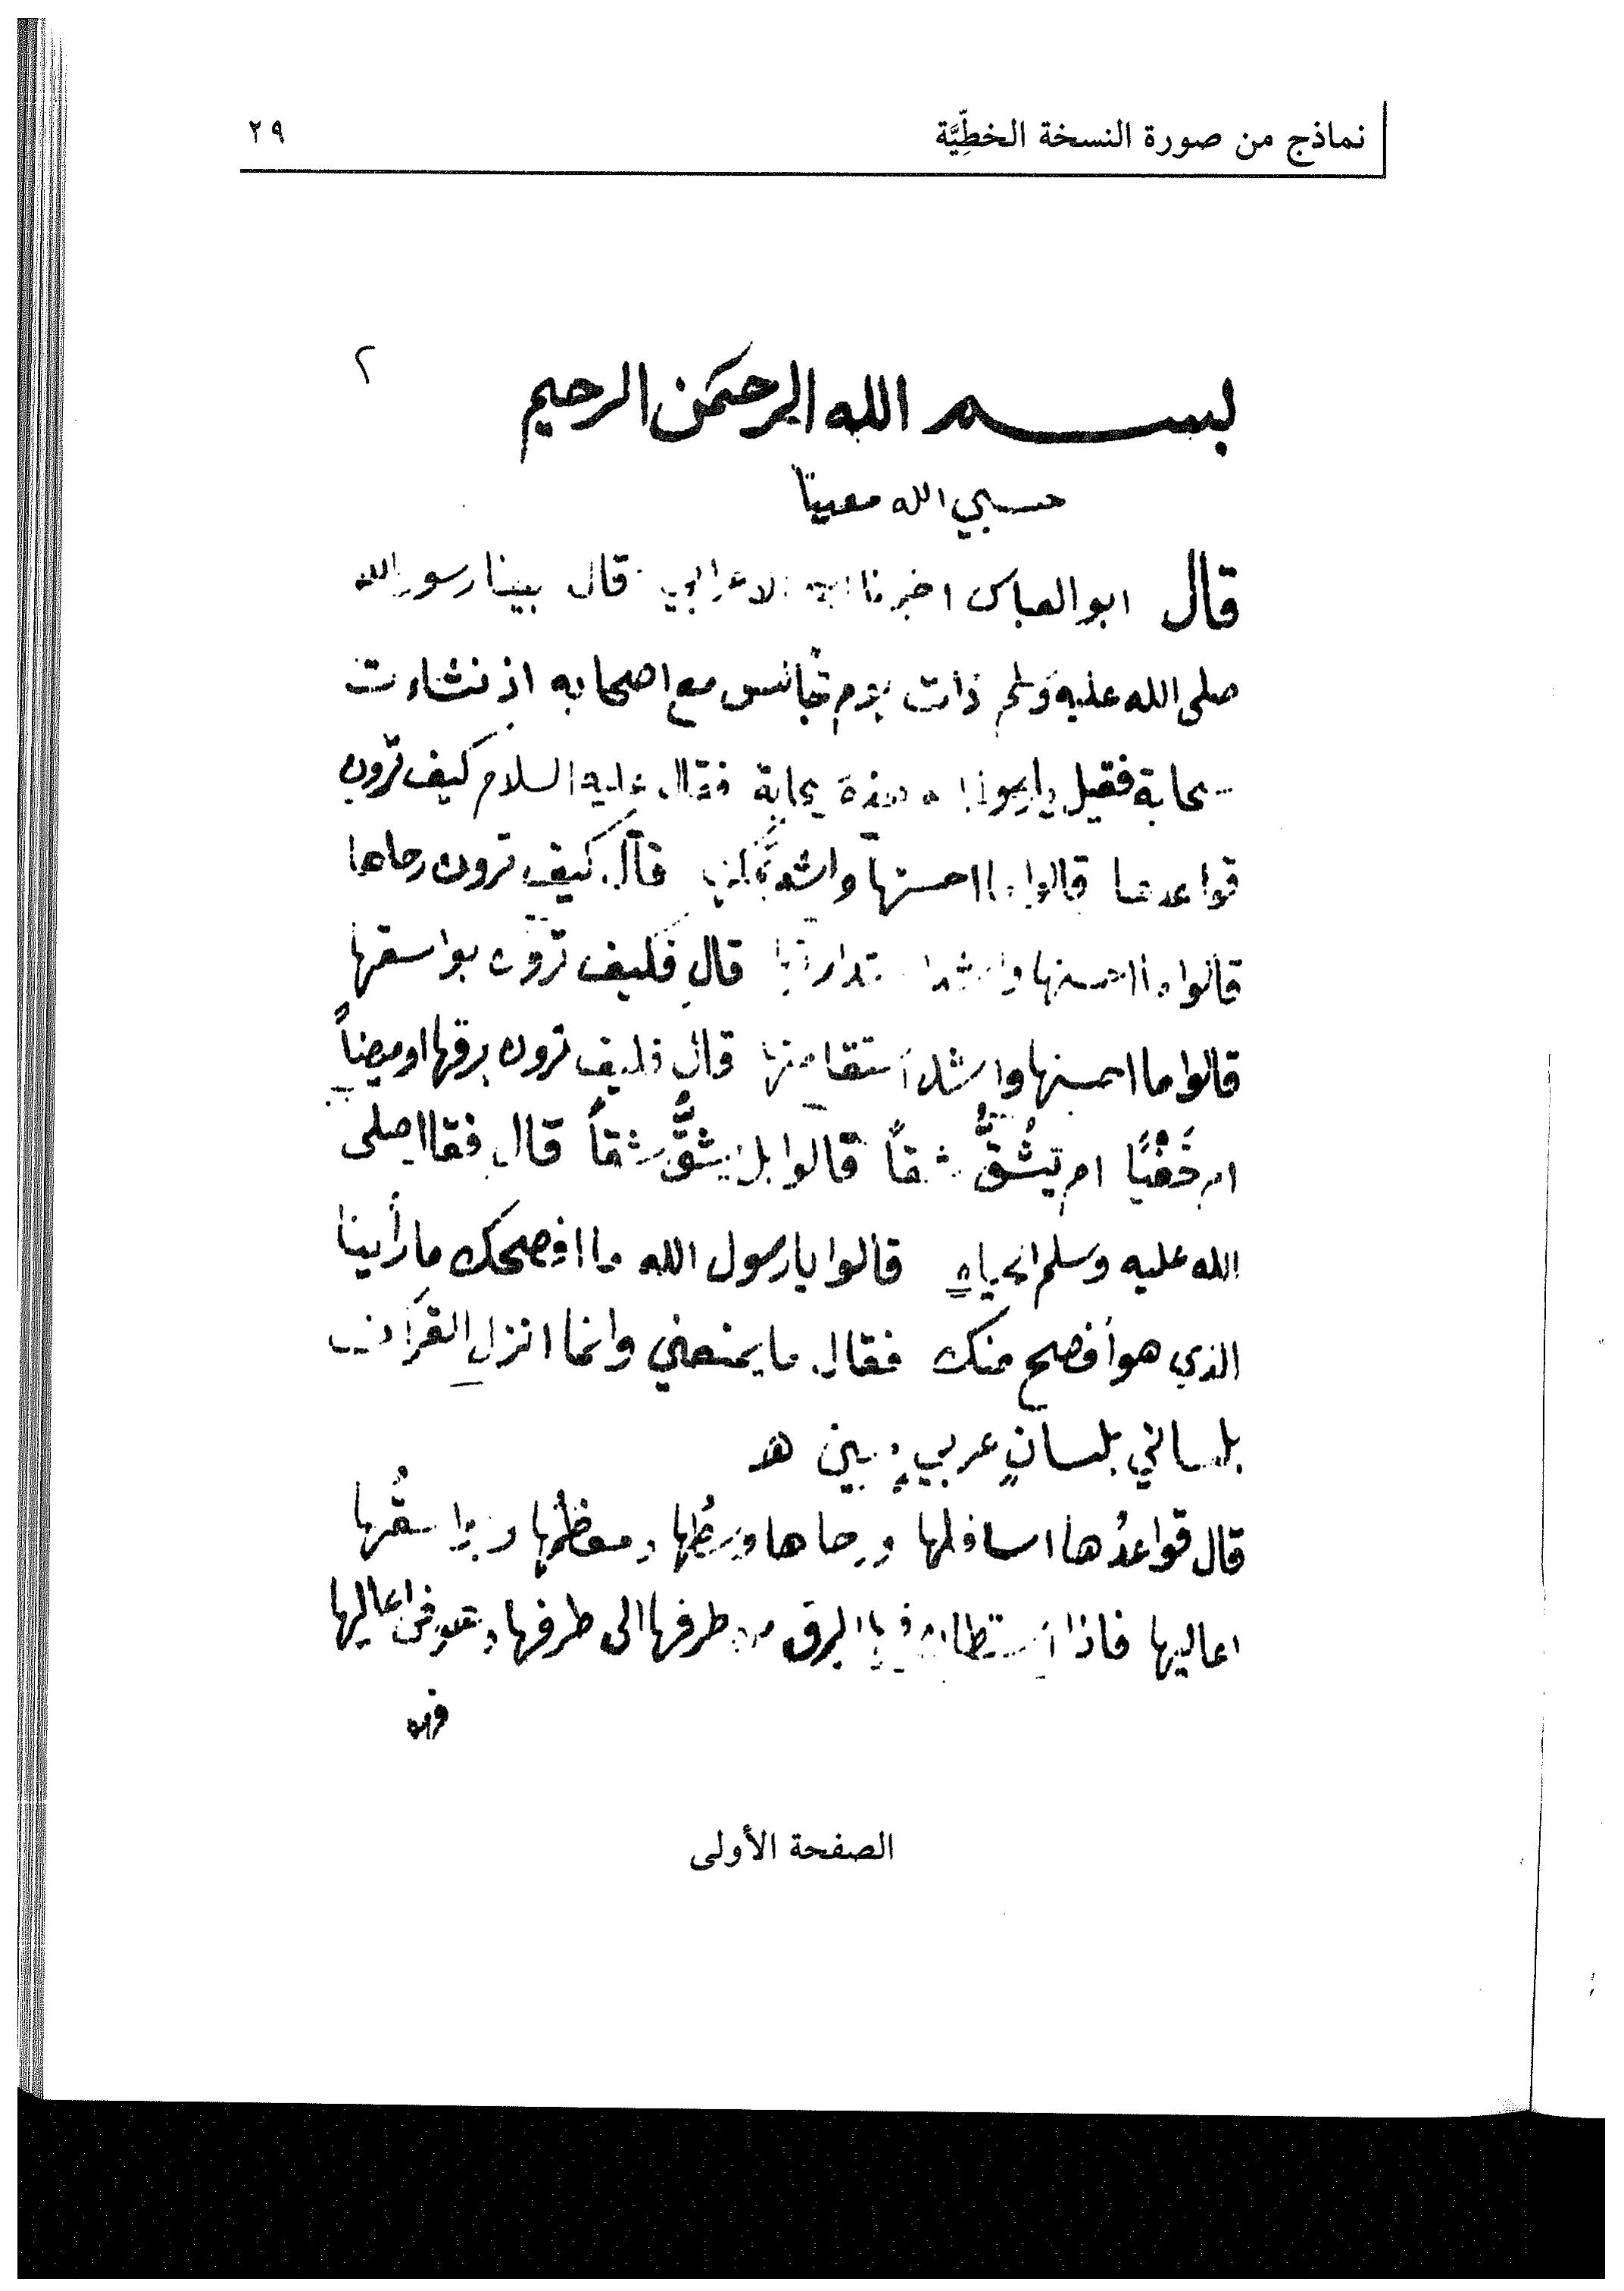 نماذج من صورة النسخة الخطِّيَّة
٢٩
٢
بسم الله الرحمن الرحيم
حسبي الله معينا
قال ابو العباس اخبرنا ابن الاعرابي قال بينا رسول الله
صلى الله عليه وسلم ذات يوم جالس مع اصحابه اذ نشاءت
سحابة فقيل يا رسول الله هذه سحابة فقال عليه السلام كيف ترون
قواعدها قالوا ما احسنها واشد تمكنها قال كيف ترون رحاها
قالوا ما احسنها واشد استدارتها قال فكيف ترون بواسقها
قالوا ما احسنها واشد استقامتها قال فكيف ترون برقها اوميضاً
ام خَفْيًا ام يَشُقُّ شقاً قالوا بل يشقُّ شقاً قال فقال صلى
الله عليه وسلم الحياه قالوا يا رسول الله ما افصحك ما رأينا
الذي هو أفصح منك فقال ما يمنعني وانما انزل القرآن
بلساني بلسانٍ عربيٍ مبين هـ
قال قواعدُها اسافلها ورحاها وسَطُها ومعظمُها وبواسقُها
اعاليها فاذا استطار فيها البرق من طرفها الى طرفها وهو في اعاليها
فهو
الصفحة الأولى